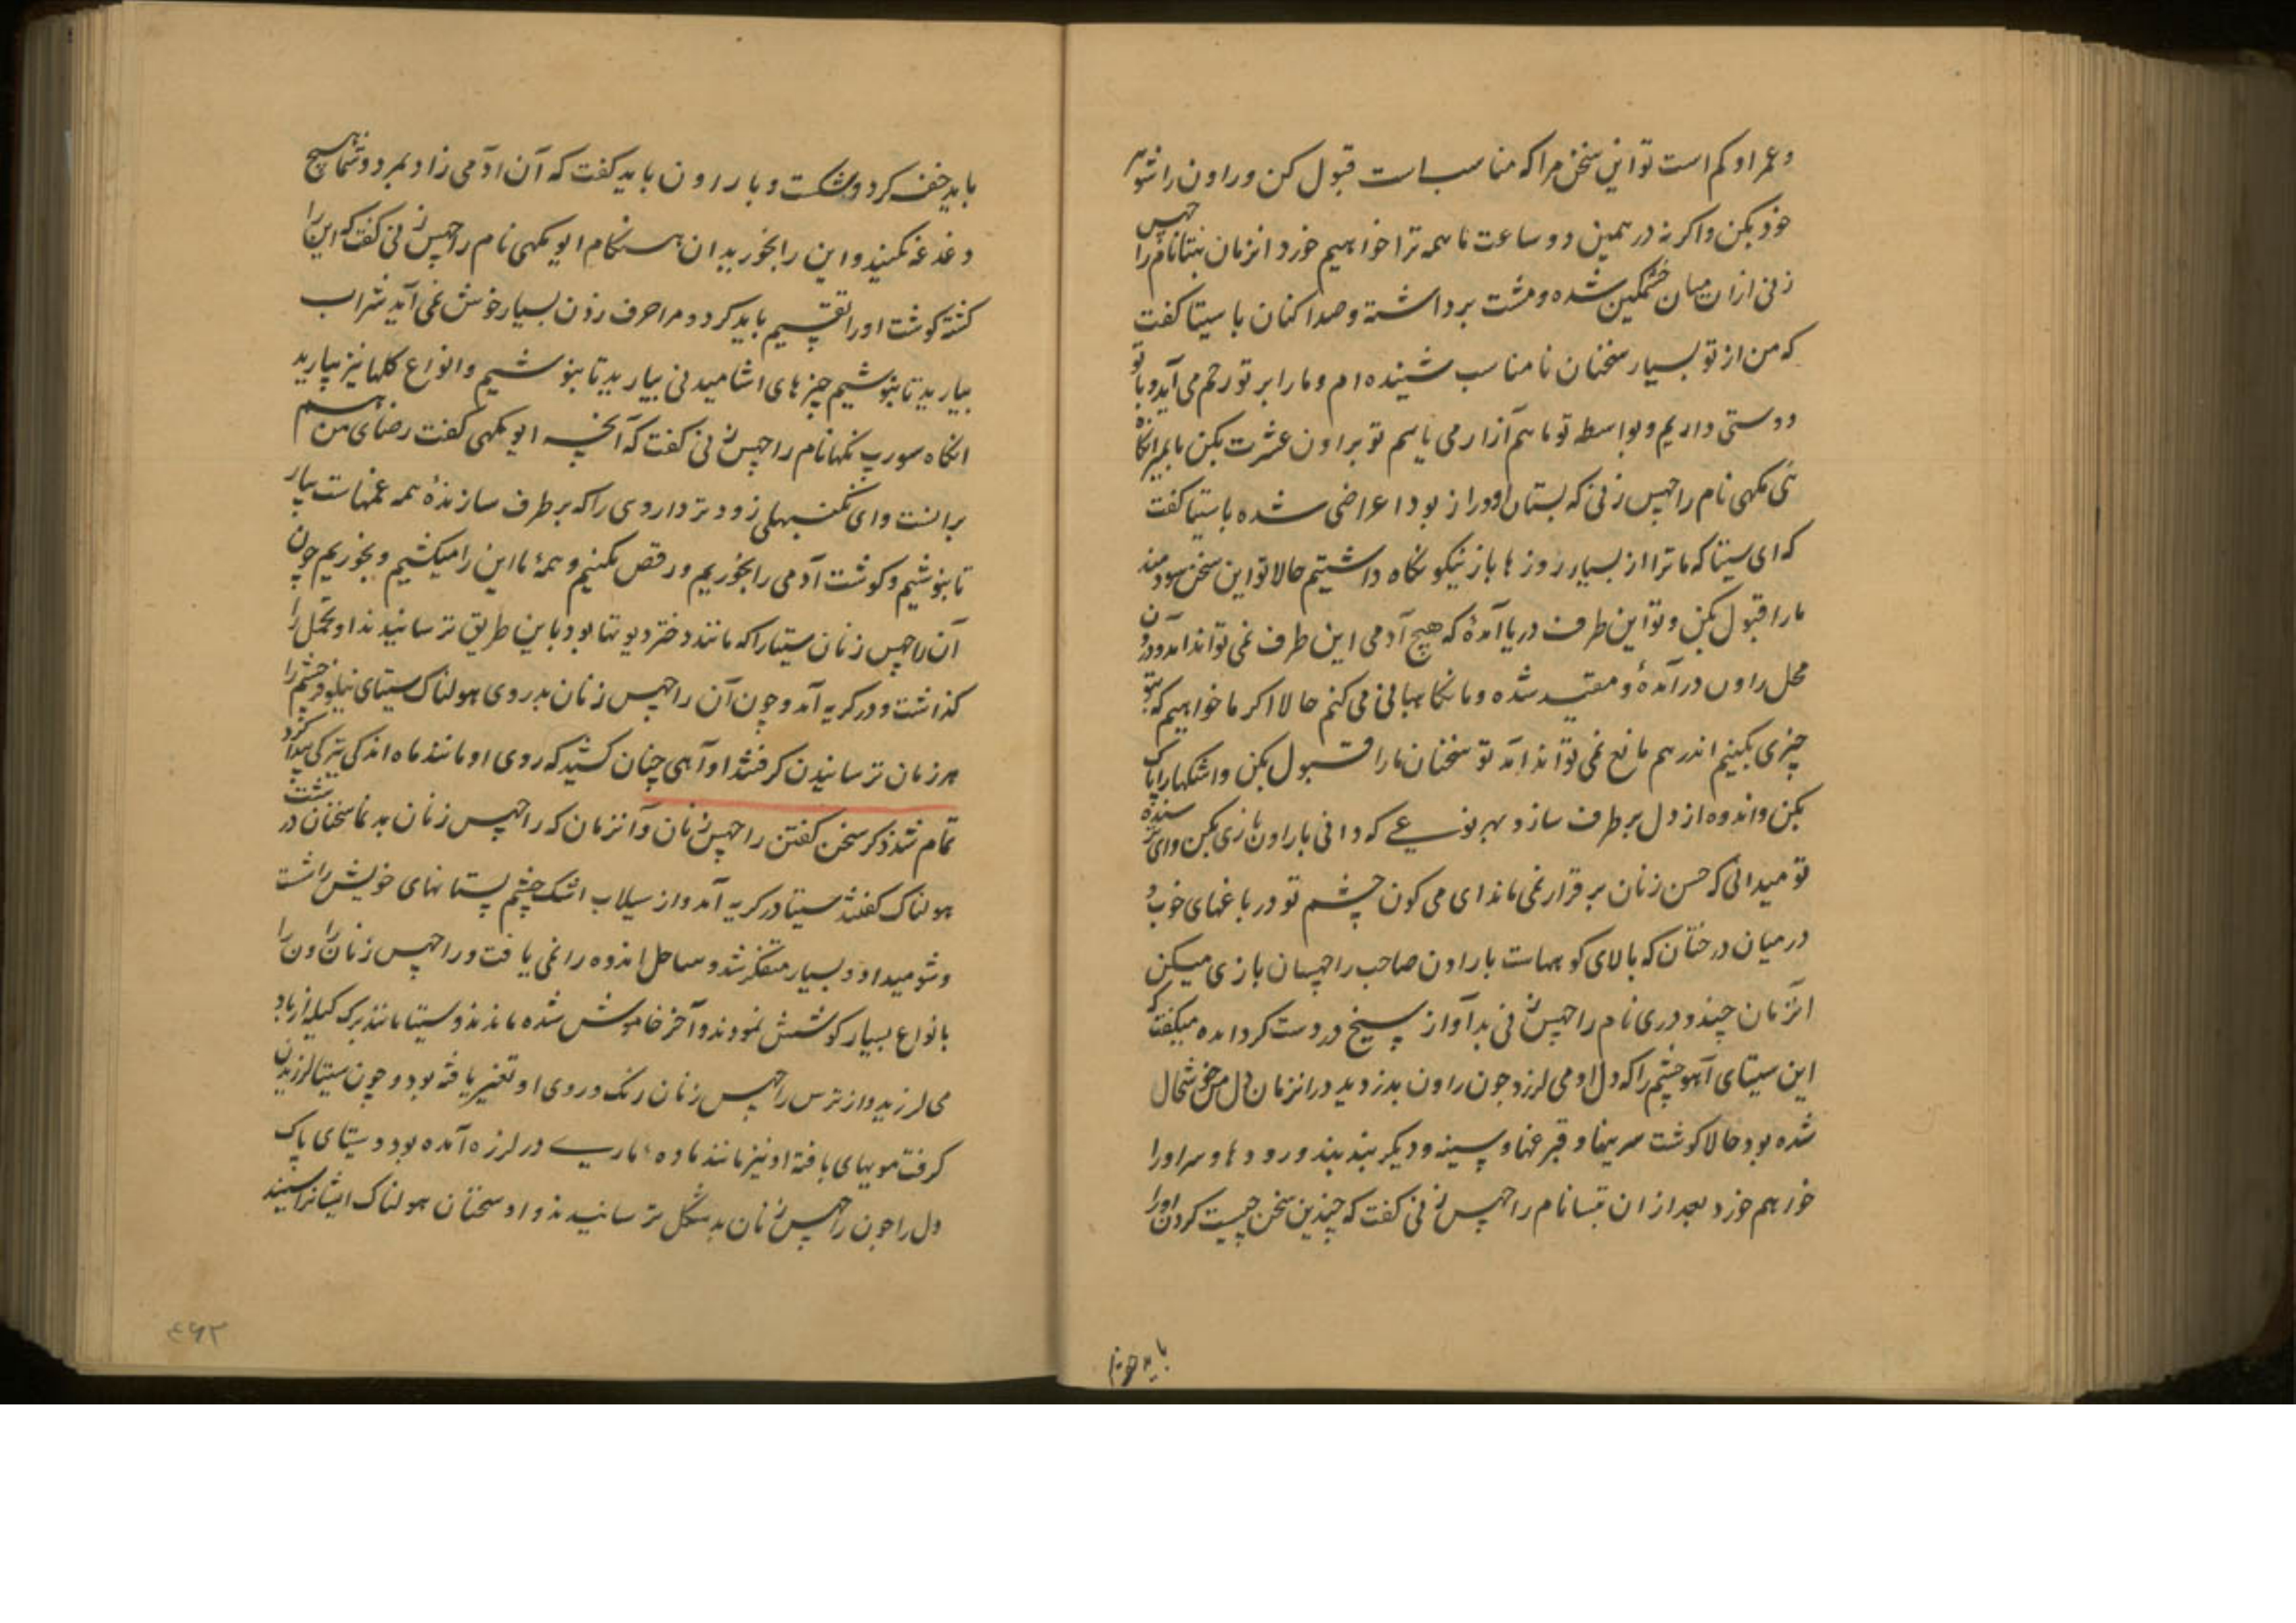 و عمر او کم است تو این سخن مرا که مناسب است قبول کن و راون را شوهر
خود بکن و اکر نه در همین دو ساعت ما همه ترا خواهیم خورد انزمان نبتا نام راچهس
زنی ازان میان خشمکین شده و مشت برداشته و صدا کنان با سیتا کفت
که من از تو بسیار سخنان نامناسب شنیده ام و ما را بر تو رحم می آید و با تو
دوستی داریم و بواسطه تو ما هم آزار می یابیم تو براون عشرت بکن یا بمیر انکاه
مکهی نام راچهس زنی که پستان او دراز بود اعراضی شده با سیتا کفت
که ای سیتا که ما ترا از بسیار روزها باز نیکو نکاه داشتیم حالا تو این سخن سودمند
ما را قبول بکن و تو این طرف دریا آمدهٔ که هیچ آدمی این طرف نمی تواند آمد و درون
محل راون در آمدهٔ و مقید شده و ما نکاهبانی می کنم حالا اکر ما خواهیم که بتو
چیزی بکنیم اندر هم مانع نمی تواند آمد تو سخنان ما را قبول بکن و اشکها را پاک
بکن و اندوه از دل برطرف ساز و بهر نوعی که دانی با راون بازی بکن و ای ترسنده
تو میدانی که حسن زنان برقرار نمی ماند ای می کون چشم تو در باغهای خوب و
در میان درختان که بالای کوههاست با راون صاحب راچهسان بازی میکن
انزمان چندودری نام راچهس زنی بد آواز سیخ در دست کردانده میکفت که
این سیتای آهو چشم را که دل او می لرزد چون راون بدزدید در انزمان دل من خوشحال
شده بود حالا کوشت سرینها و قبرعنها و سینه و دیکر بند بند و رودها و سر او را
خواهم خورد بعد از ان نام راچهس زنی کفت که چندین سخن چیست کردن او را
باید خفه
باید خفه کرد و شکست و با راون باید کفت که آن ادمی زاد بمرد و شما هیچ
دغدغه نکنید و این را بخورید ان هنکام ایومکهی نام راچهس زنی کفت که این را
کشته کوشت او را تقسیم باید کرد و مرا حرف زدن بسیار خوش نمی آید شراب
بیارید تا بنوشیم چیزهای اشامیدنی بیارید تا بنوشیم و انواع کلها نیز بیارید
انکاه سورپ نکها نام راچهس زنی کفت که آنچه ایومکهی کفت رضای من هم
برانست و ای زودتر داروی را که برطرف سازندهٔ همه غمهاست بیار
تا بنوشیم و کوشت آدمی را بخوریم و رقص بکنیم و همهٔ ما این را میکشیم و بخوریم چون
آن راچهس زنان سیتا را که مانند دختر دیوتها بود باین طریق ترسانیدند او تحمل را
کذاشت و در کریه آمد و چون آن راچهس زنان بد روی هولناک سیتای نیلوفر چشم را
هر زمان ترسانیدن کرفتند او آهی چنان کشید که روی او مانند ماه اندکی تیرکی پیدا کرد
تمام شد ذکر سخن کفتن راچهس زنان و آنزمان که راچهس زنان بدنما سخنان درشت
هولناک کفتند سیتا در کریه آمد و از سیلاب اشک چشم پستانهای خویش را شست
و شو میداد و بسیار متفکر شد و ساحل اندوه را نمی یافت و راچهس زنان راون را
بانواع بسیار کوشش نمودند و آخر خاموش شده ماندند و سیتا مانند برک کیله از باد
می لرزید و از ترس راچهس زنان رنک و روی او تغییر یافته بود و چون سیتا لرزیدن
کرفت مویهای بافته او نیز مانند ماده ماری در لرزه آمده بود و سیتای پاک
دل را چون راچهس زنان بد شکل ترسانیدند و او سخنان هولناک ایشانرا شنید
۴۶۲